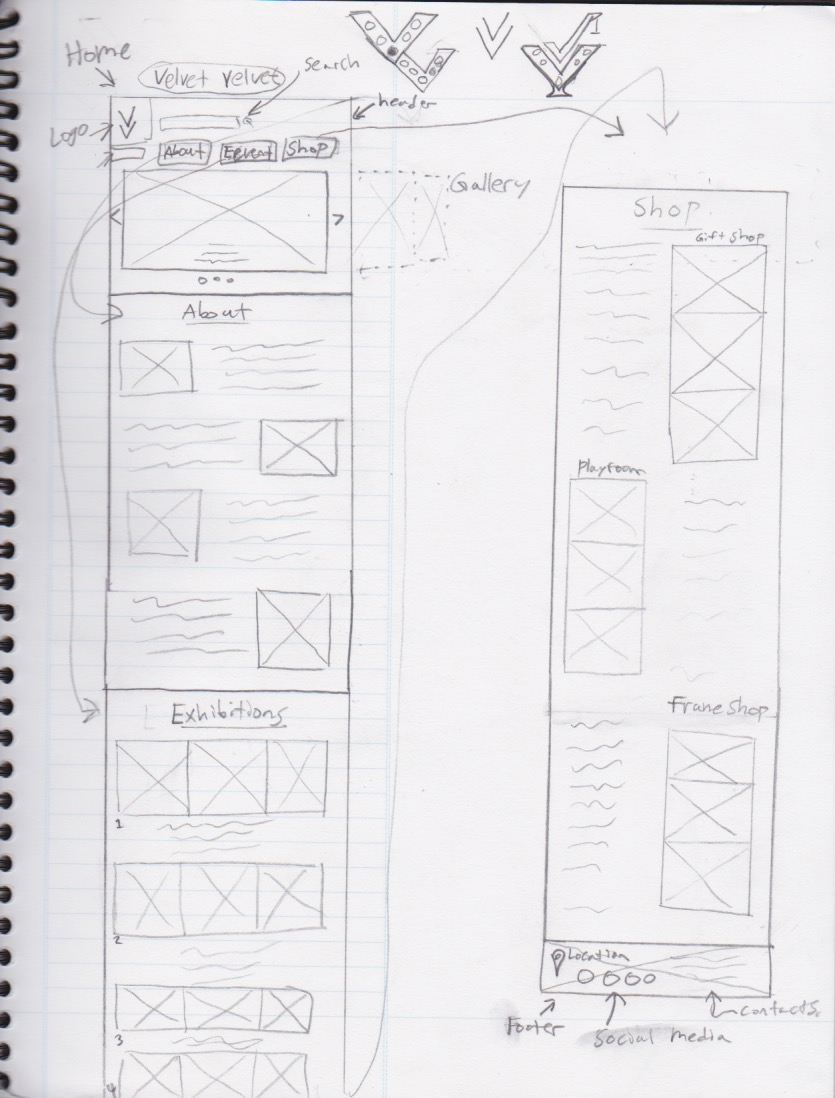 Home
Velvet Velvet
Search
header
Logo
About
Event
Shop
Gallery
About
Exhibitions
1
2
3
4
Shop
Gift Shop
Playroom
Frame Shop
Location
Footer
Social media
contacts